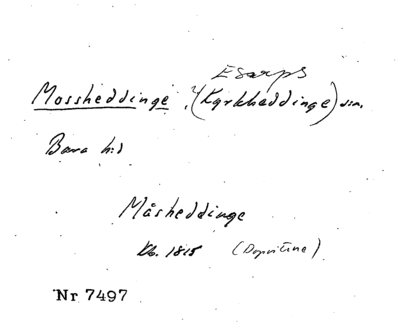 Esarps
Mossheddinge, (Kyrkheddinge) sn.
Bara hd
Måsheddinge
1815
Nr 7497